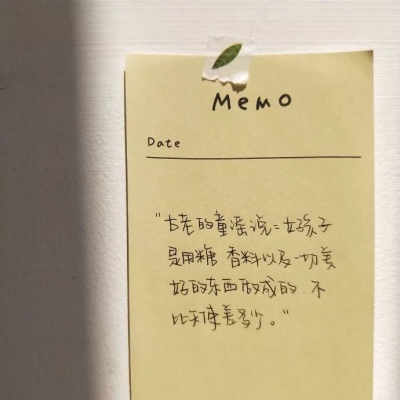 MEMO
Date
"古老的童谣说：女孩子
是用糖 香料以及一切美
好的东西做成的.不
比天使差多少。"